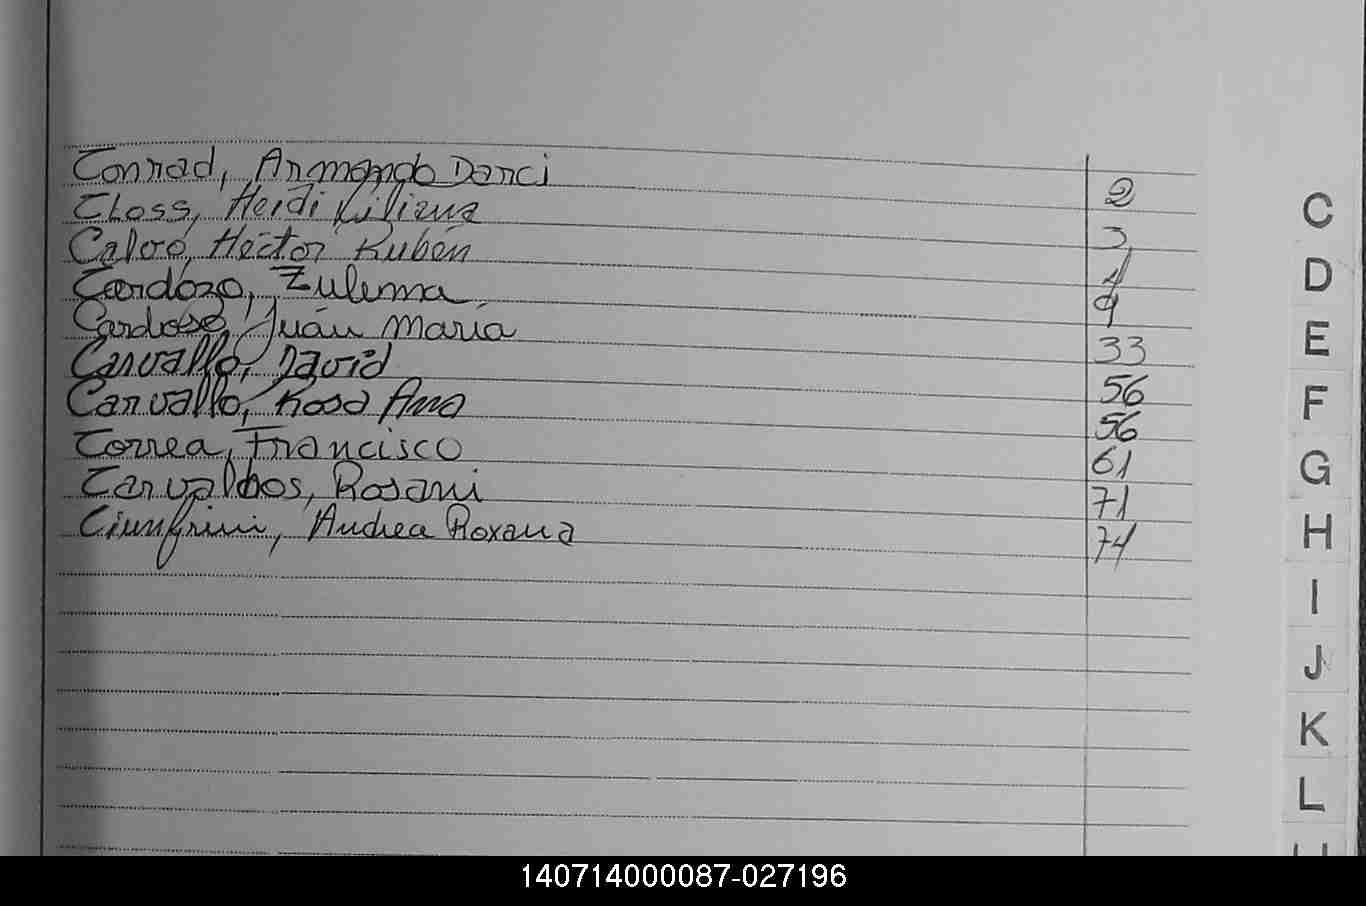 Conrad, Armando Darci 2
Closs, Heidi Liliana 3
Calvo, Héctor Rubén 4
Cardozo, Zulema 9
Cardoso, Juán María 33
Carvallo, David 56
Carvallo, Rosa Ana 56
Correa, Francisco 61
Carvalhos, Rosani 71
Ciunfrini, Andrea Roxana 74
C
D
E
F
G
H
I
J
K
L
140714000087-027196